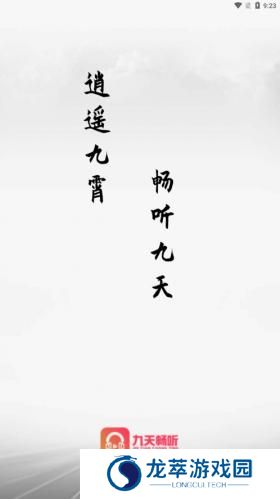 9:23
逍遥九霄
畅听九天
九天畅听
龙萃游戏园
LONGCULTECH